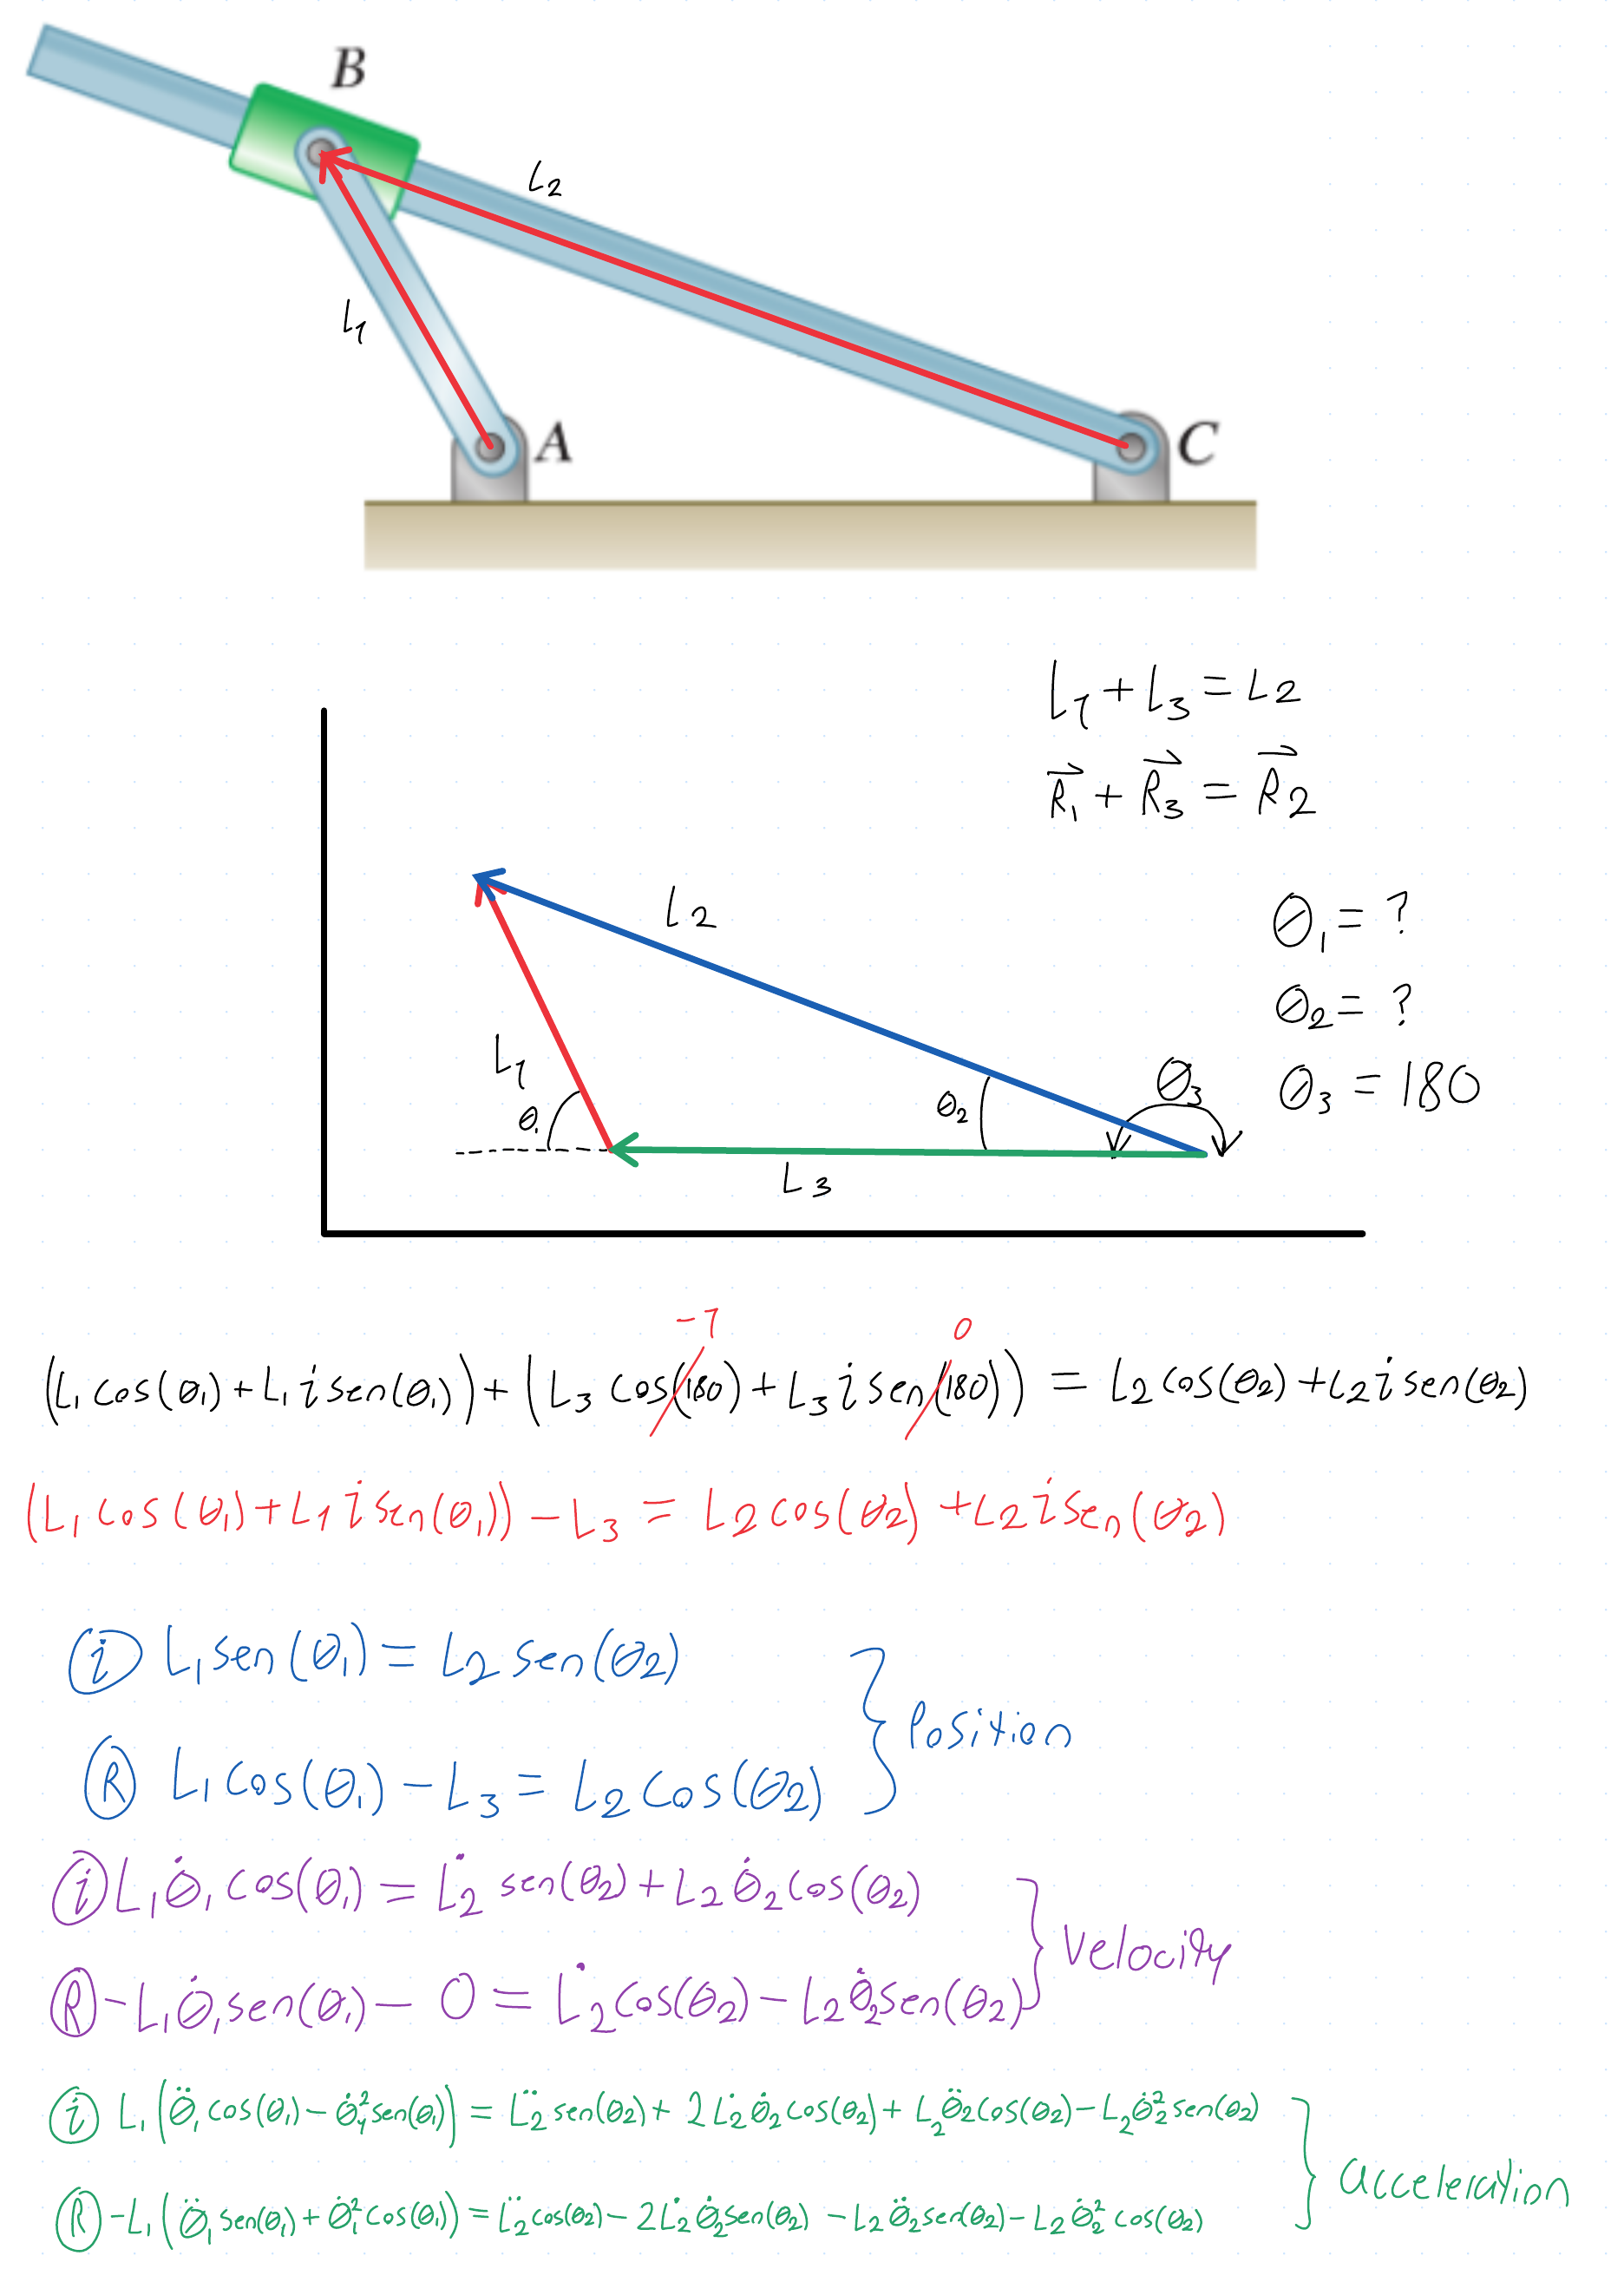 B
L2
L1
A
C
L1 + L3 = L2
R⃗1 + R⃗3 = R⃗2
L2
θ1 = ?
θ2 = ?
L1
θ3
θ3 = 180
θ1
θ2
L3
-1
0
(L1 cos(θ1) + L1 i sen(θ1)) + (L3 cos(180) + L3 i sen(180)) = L2 cos(θ2) + L2 i sen(θ2)
(L1 cos(θ1) + L1 i sen(θ1)) - L3 = L2 cos(θ2) + L2 i sen(θ2)
ⓘ L1 sen(θ1) = L2 sen(θ2)
Position
Ⓡ L1 cos(θ1) - L3 = L2 cos(θ2)
ⓘ L1 θ̇1 cos(θ1) = L̇2 sen(θ2) + L2 θ̇2 cos(θ2)
Velocity
Ⓡ -L1 θ̇1 sen(θ1) - 0 = L̇2 cos(θ2) - L2 θ̇2 sen(θ2)
ⓘ L1(θ̈1 cos(θ1) - θ̇1² sen(θ1)) = L̈2 sen(θ2) + 2 L̇2 θ̇2 cos(θ2) + L2 θ̈2 cos(θ2) - L2 θ̇2² sen(θ2)
acceleration
Ⓡ -L1(θ̈1 sen(θ1) + θ̇1² cos(θ1)) = L̈2 cos(θ2) - 2 L̇2 θ̇2 sen(θ2) - L2 θ̈2 sen(θ2) - L2 θ̇2² cos(θ2)